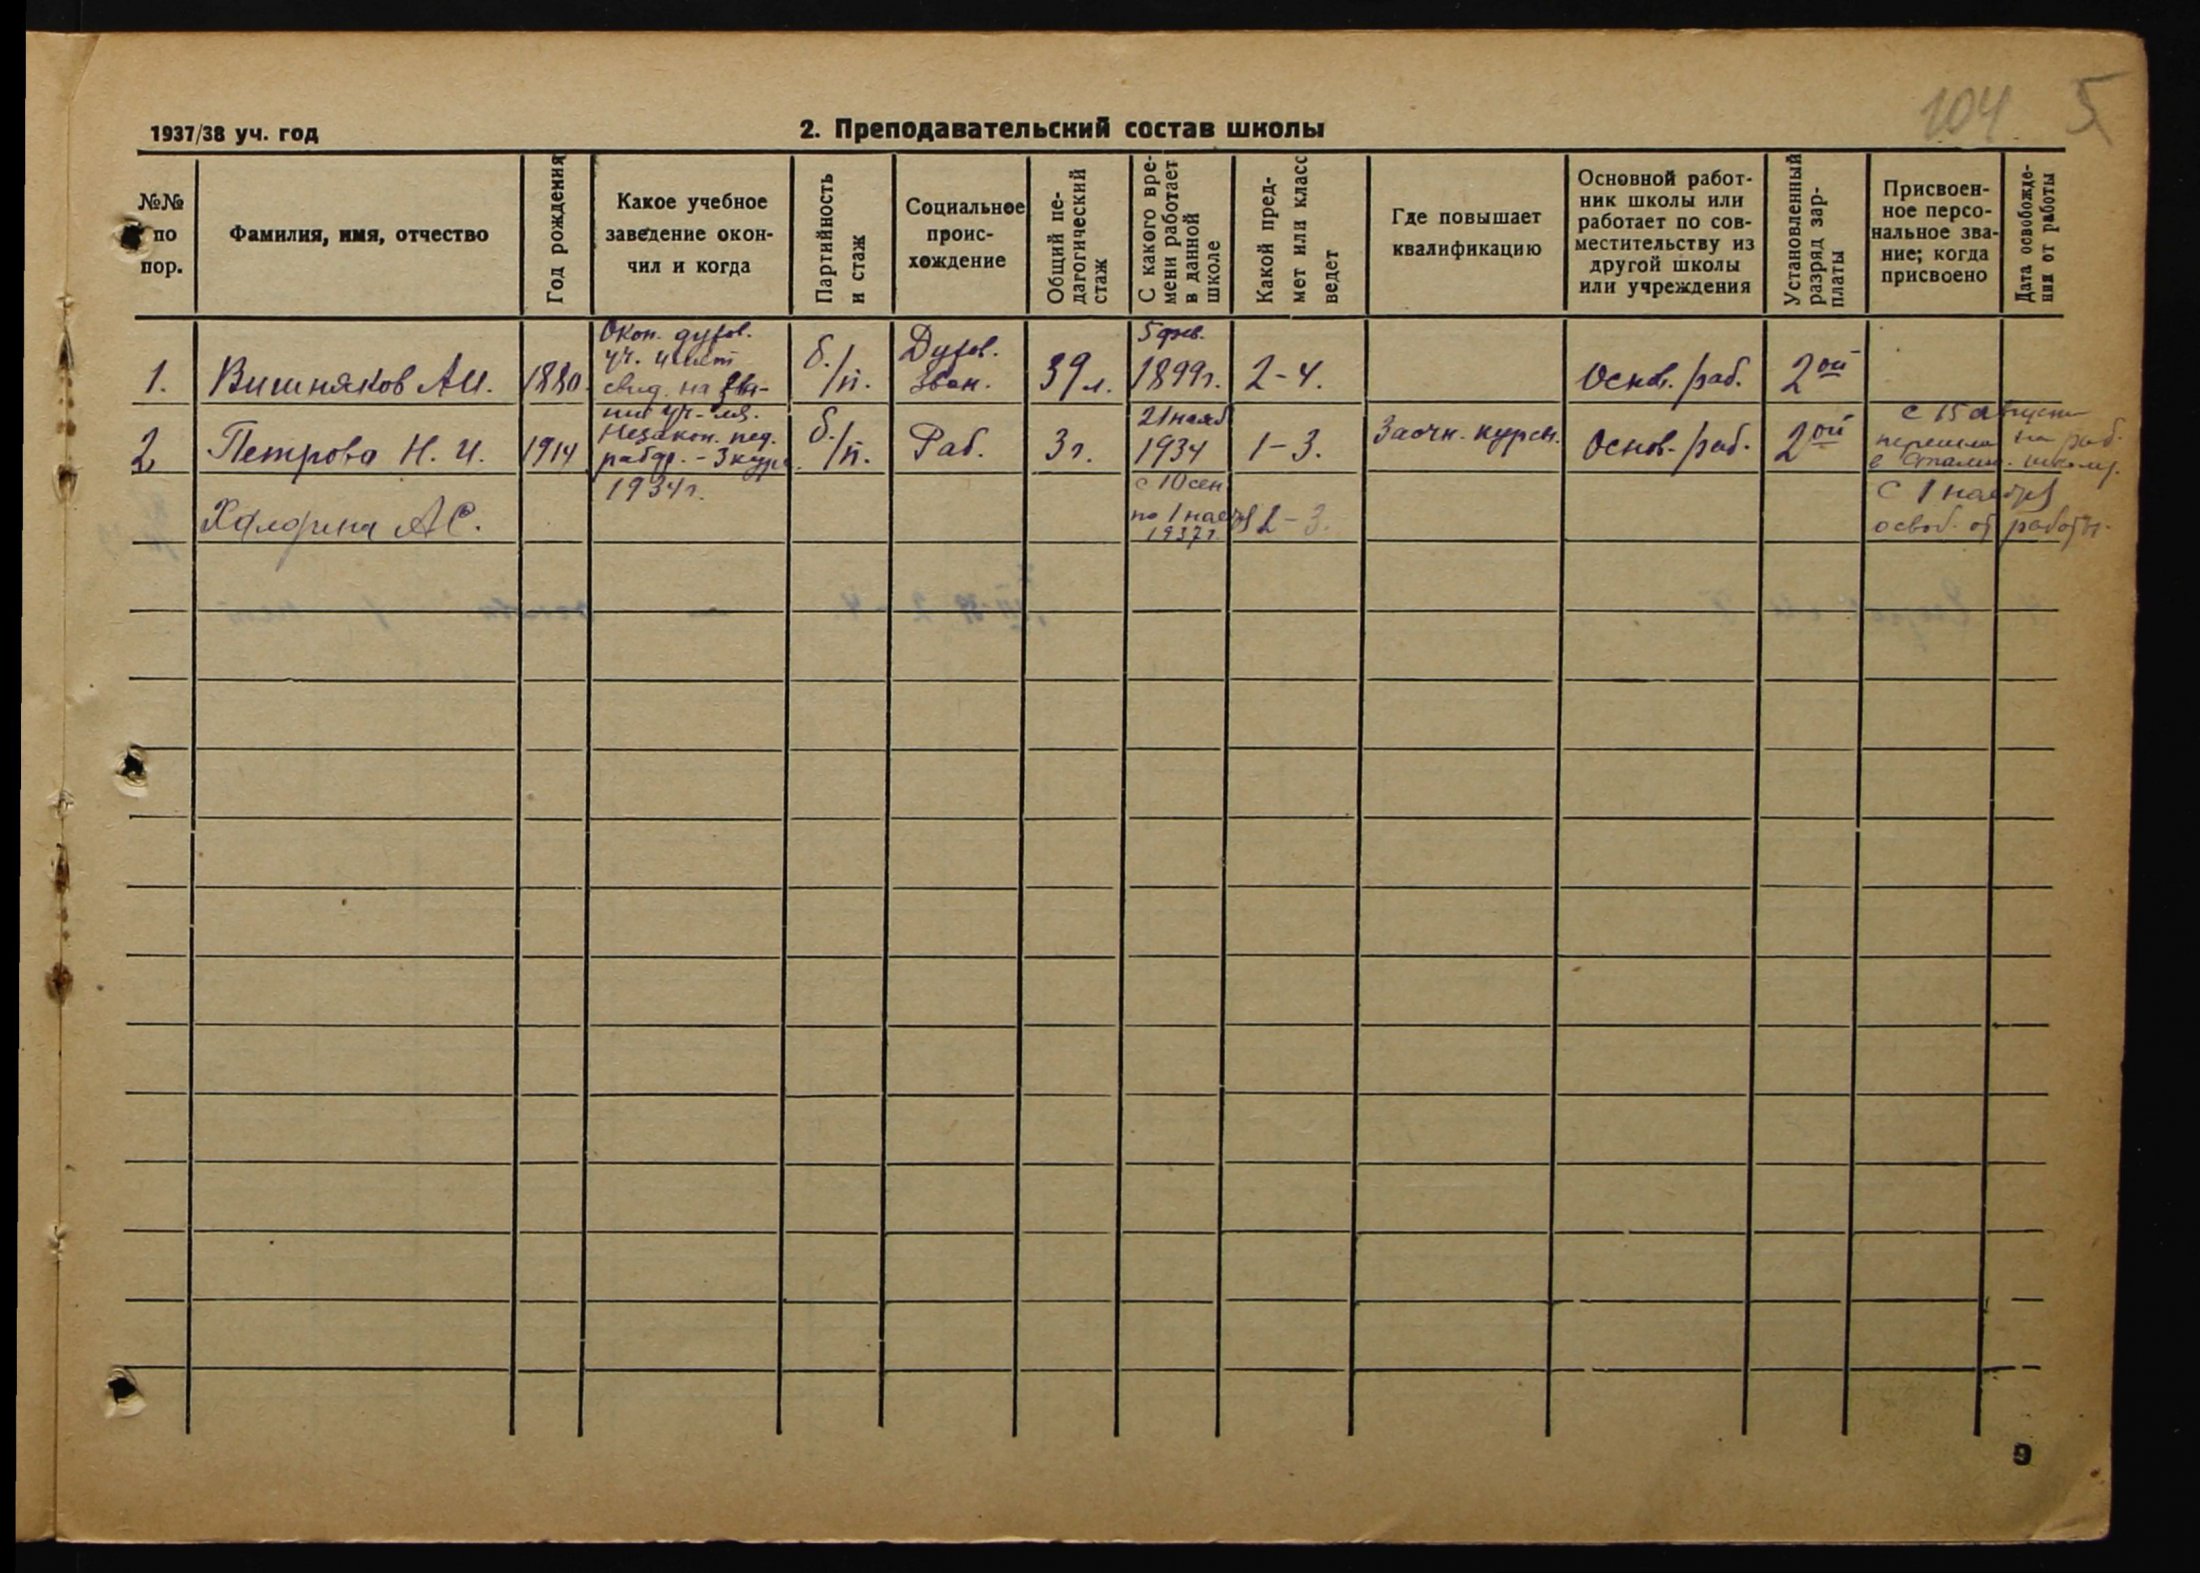 104 5
1937/38 уч. год
2. Преподавательский состав школы
№№
по
пор.
Фамилия, имя, отчество
Год рождения
Какое учебное
заведение окон-
чил и когда
Партийность
и стаж
Социальное
проис-
хождение
Общий пе-
дагогический
стаж
С какого вре-
мени работает
в данной
школе
Какой пред-
мет или класс
ведет
Где повышает
квалификацию
Основной работ-
ник школы или
работает по сов-
местительству из
другой школы
или учреждения
Установленный
разряд зар-
платы
Присвоен-
ное персо-
нальное зва-
ние; когда
присвоено
Дата освобожде-
ния от работы
1.
Вишняков А.И.
1880
Окон. духов.
уч. имеет
свид. на зва-
ние уч-ля.
б./п.
Духов.
зван.
39 л.
5 фев.
1899г.
2-4.
Основ. раб.
2ой
2
Петрова Н. И.
1914
Незакон. пед.
рабф. - 3 курс.
1934г.
б./п.
Раб.
3 г.
21 нояб
1934
1-3.
Заочн. курсы.
Основ. раб.
2ой
с 15 августа
перешла на раб.
в школу.
А С.
с 10 сен
по 1 ноября
1937г.
2-3.
С 1 ноября
освоб. от работы.
9